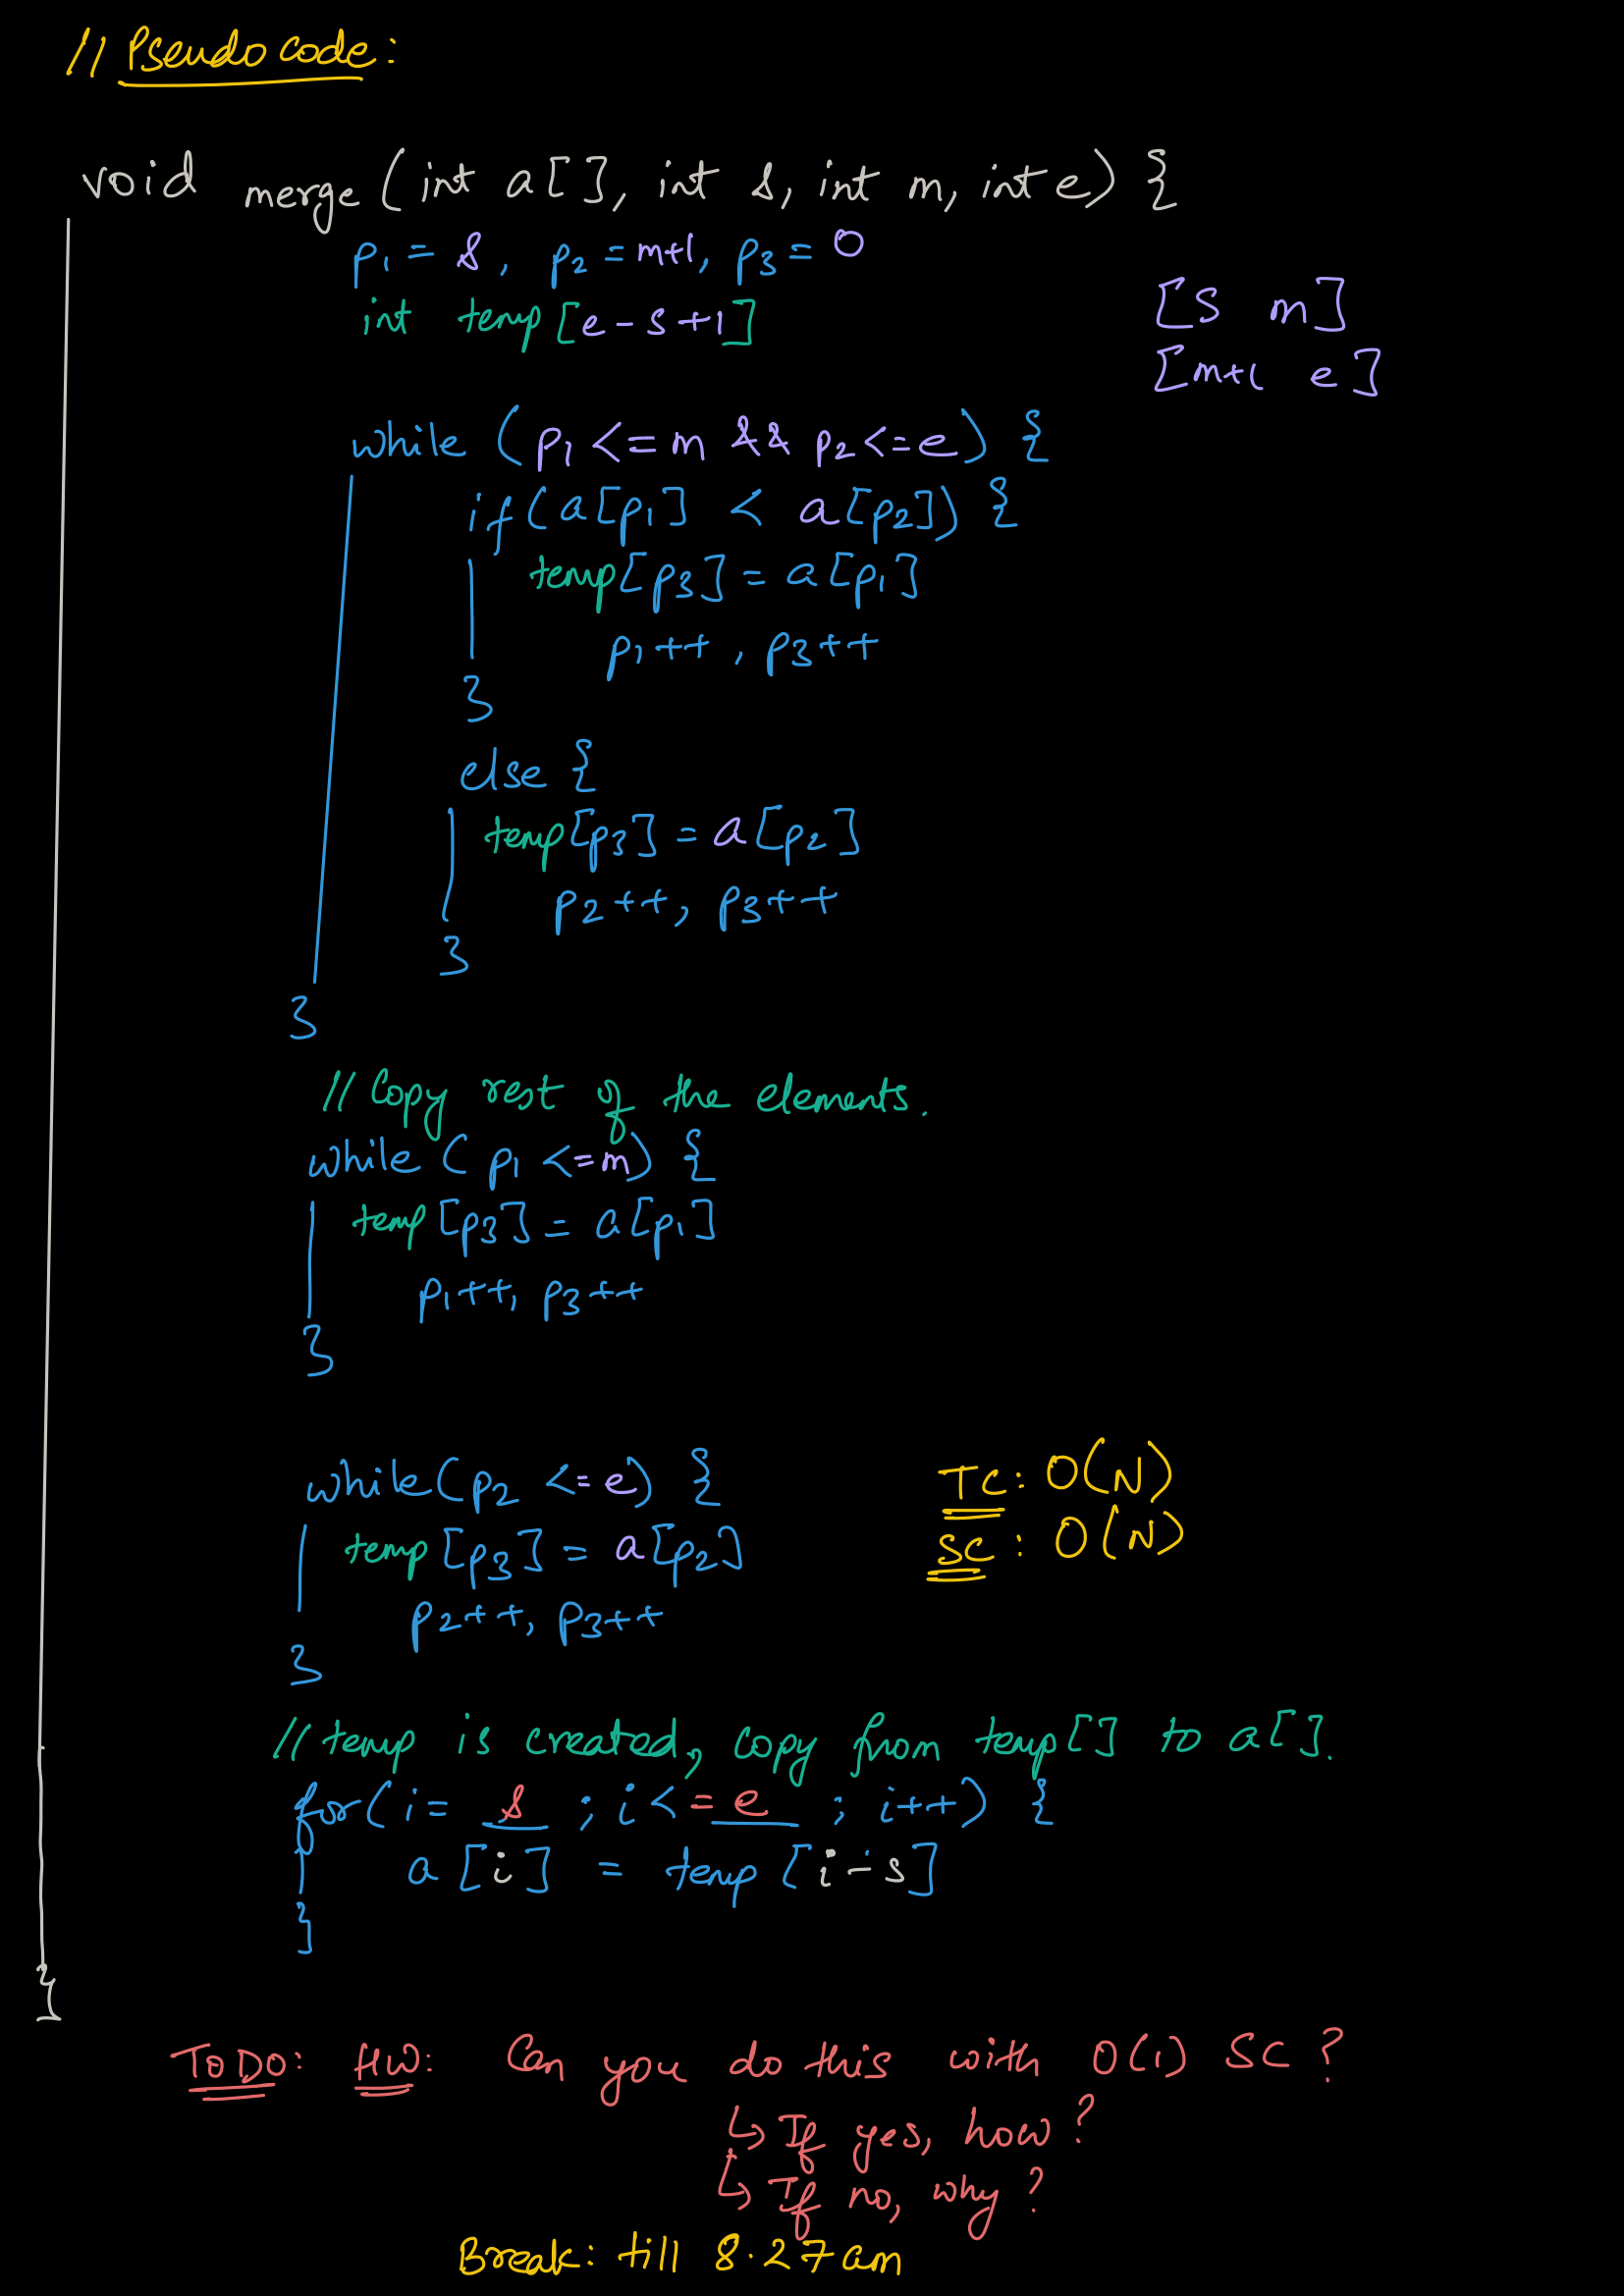 // Pseudo code:
void merge (int a[], int s, int m, int e) {
p1 = s, p2 = m+1, p3 = 0
int temp[e-s+1]
[s m]
[m+1 e]
while (p1 <= m && p2 <= e) {
if (a[p1] < a[p2]) {
temp[p3] = a[p1]
p1++, p3++
}
else {
temp[p3] = a[p2]
p2++, p3++
}
}
// Copy rest of the elements.
while (p1 <= m) {
temp[p3] = a[p1]
p1++, p3++
}
while (p2 <= e) {
temp[p3] = a[p2]
p2++, p3++
}
TC: O(N)
SC: O(N)
// temp is created, copy from temp[] to a[].
for(i= s ; i<=e ; i++) {
a[i] = temp[i-s]
}
}
TODO: HW: Can you do this with O(1) SC?
↳ If yes, how?
↳ If no, why?
Break: till 8.27am